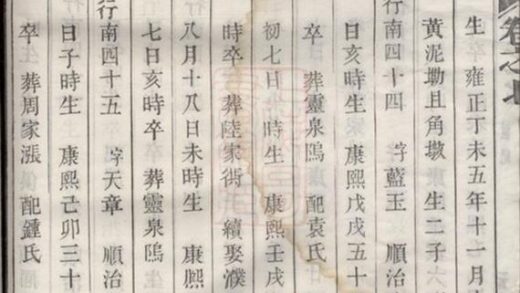 卷之七
生 雍正丁未五年十一月
黃泥墈且角墩 生二子
行南四十四 字藍玉 順治
日亥時生 康熙戊戌五十
卒 葬靈泉隖 配袁氏
初七日 時生 康熙壬戌
時卒 葬陸家衖 續娶濮
八月十八日未時生 康熙
七日亥時卒 葬靈泉隖 生
行南四十五 字天章 順治
日子時生 康熙己卯三十
卒 葬周家漾 配鍾氏